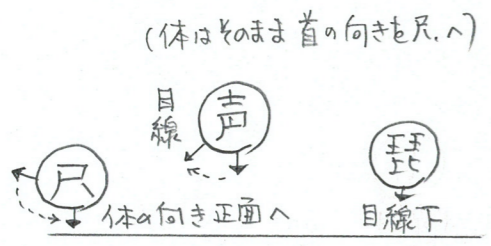 (体はそのまま首の向きを尺.へ)
目線
声
琵
尺
体の向き正面へ
目線下